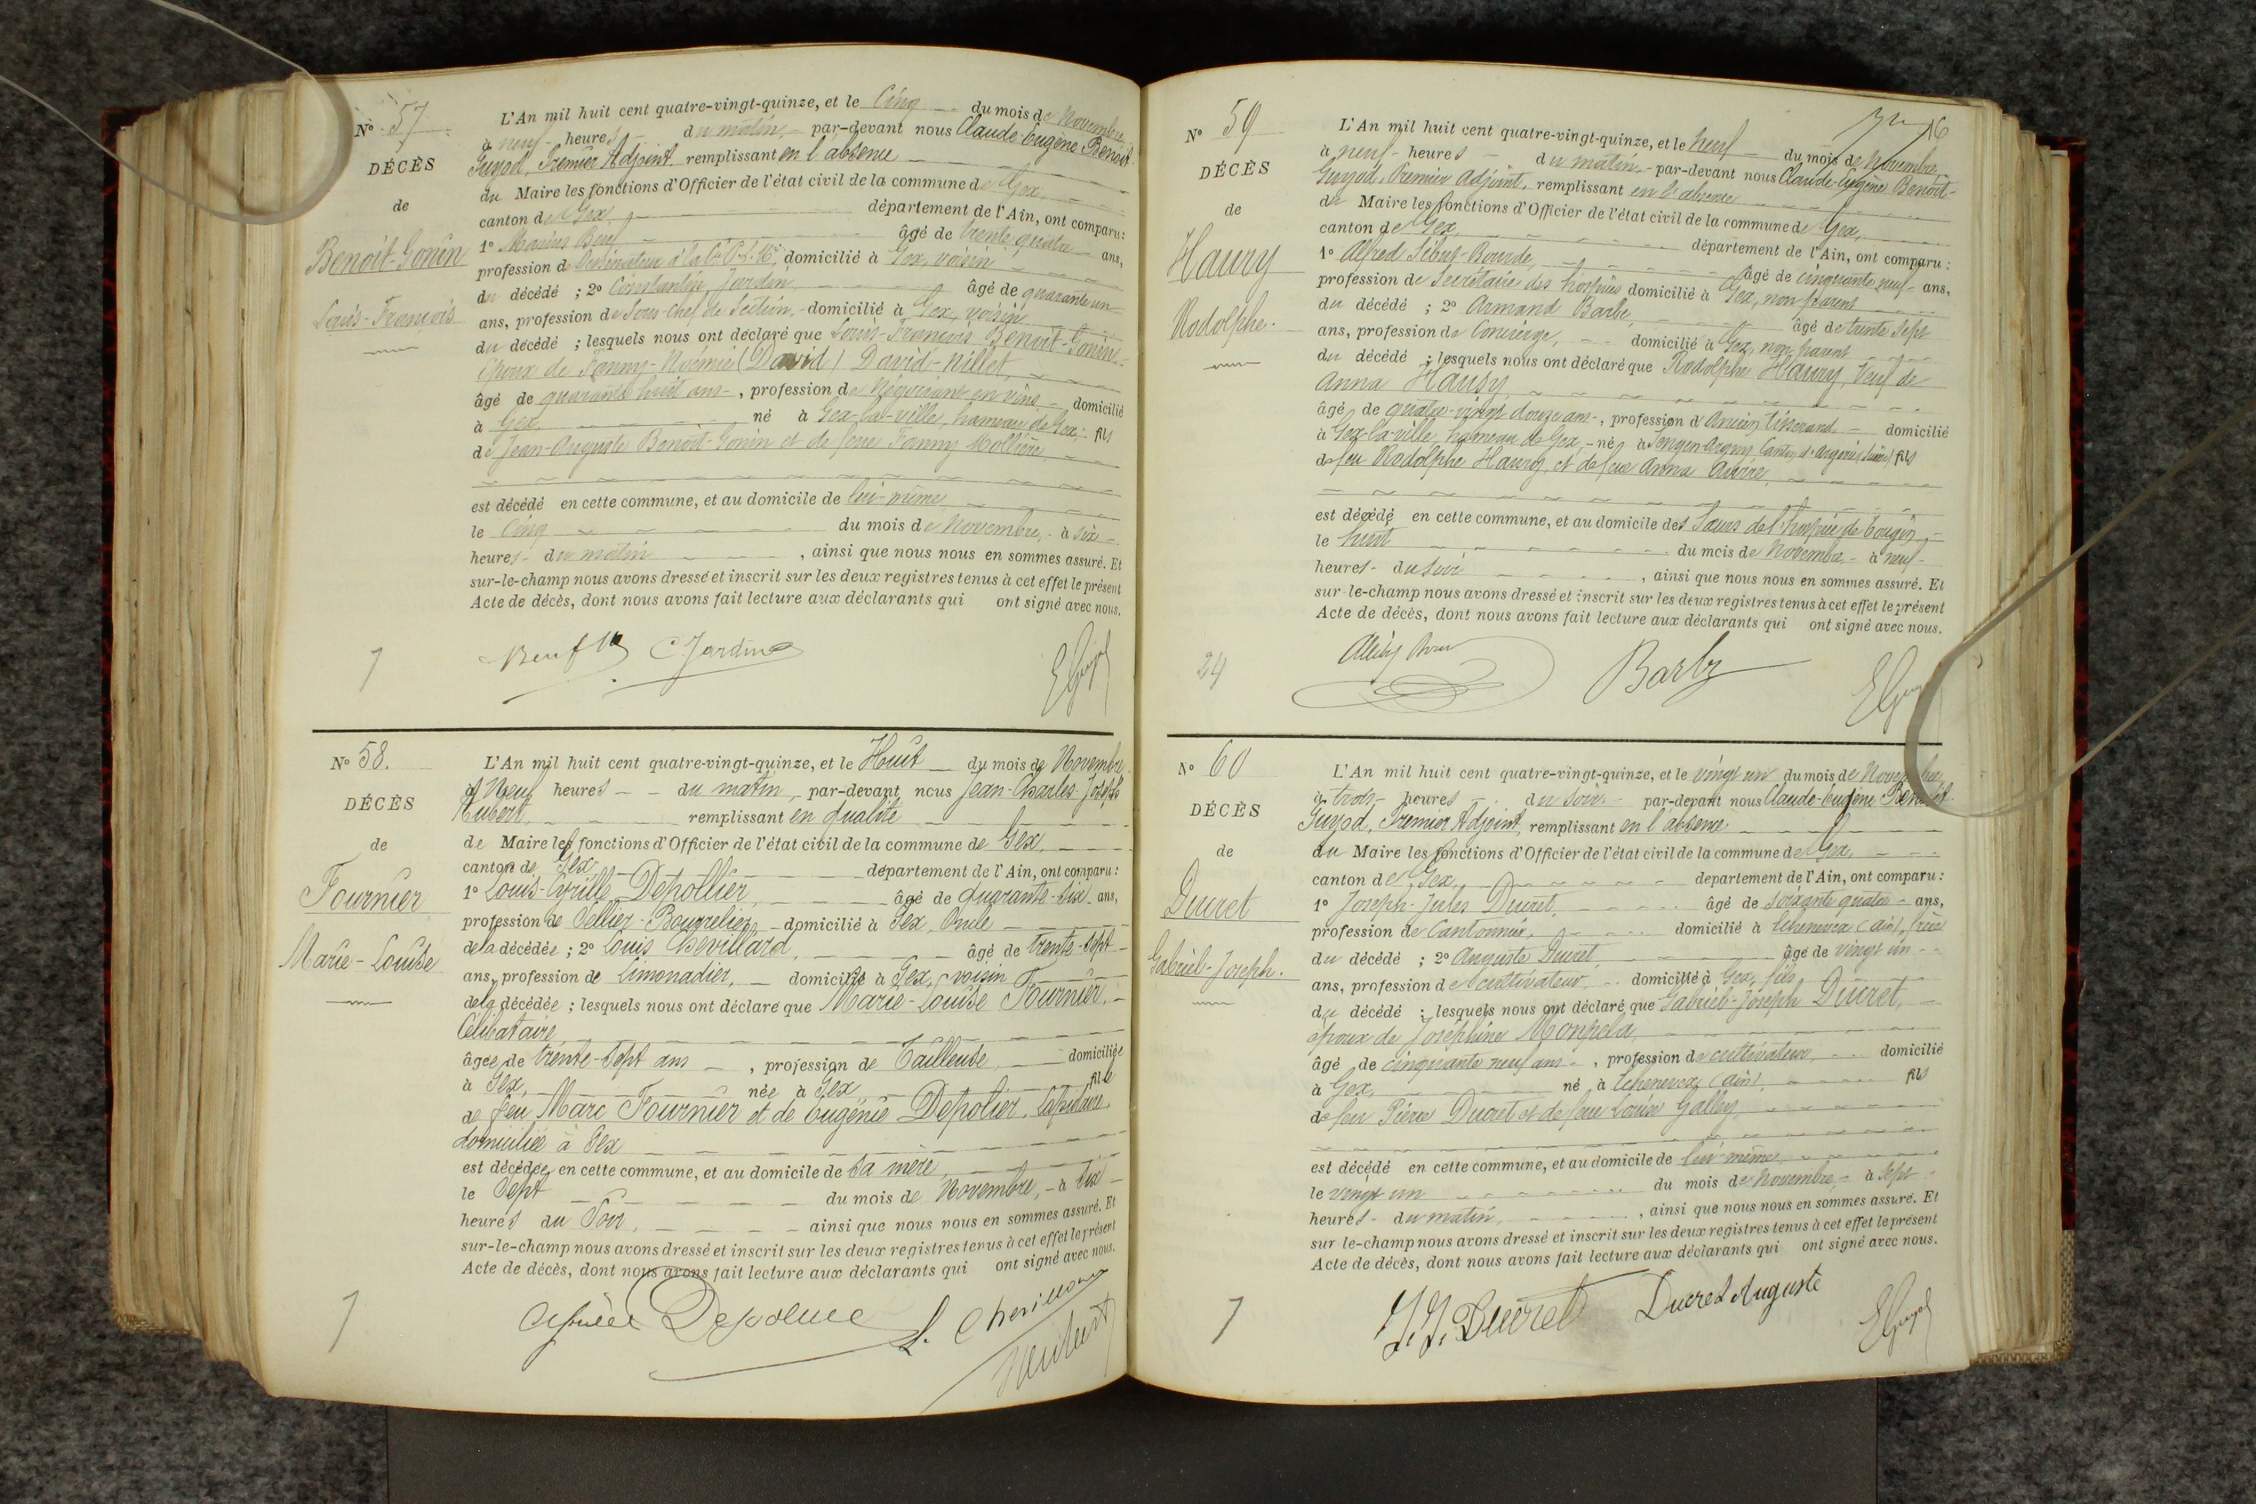 Nº 57
DÉCÈS
de
Benoit-Gonin
Louis-François
L'An mil huit cent quatre-vingt-quinze, et le Cinq du mois de Novembre
à neuf heures du matin, par-devant nous Claude-Eugène Benoit-
Guyod, Premier Adjoint remplissant en l'absence
du Maire les fonctions d'Officier de l'état civil de la commune de Gex,
canton de Gex, département de l'Ain, ont comparu:
1º Marius Beuf âgé de trente quatre ans,
profession de Dessinateur à la domicilié à Gex, voisin
du décédé ; 2º Constantin Jardin âgé de quarante un
ans, profession de Sous-chef de Section, domicilié à Gex, voisin
du décédé ; lesquels nous ont déclaré que Louis-François Benoit-Gonin
époux de Fanny-Noémie (David) David-Nillet,
âgé de quarante huit ans, profession de Négociant en vins domicilié
à Gex, né à Gex-la-ville, hameau de Gex, fils
de Jean-Auguste Benoit-Gonin et de feue Fanny Mollière,
est décédé en cette commune, et au domicile de lui-même
le Cinq du mois de Novembre, à six
heures du matin, ainsi que nous nous en sommes assuré. Et
sur-le-champ nous avons dressé et inscrit sur les deux registres tenus à cet effet le présent
Acte de décès, dont nous avons fait lecture aux déclarants qui ont signé avec nous.
7
Beuf C Jardin EGuyod
Nº 58.
DÉCÈS
de
Fournier
Marie-Louise
L'An mil huit cent quatre-vingt-quinze, et le Huit du mois de Novembre
à Neuf heures du matin, par-devant nous Jean-Charles-Joseph
Hubert, remplissant en qualité
de Maire les fonctions d'Officier de l'état civil de la commune de Gex,
canton de Gex département de l'Ain, ont comparu:
1º Louis-Cyrille Depollier, âgé de quarante-six ans,
profession de Sellier-Bourrelier, domicilié à Gex, Oncle
de la décédée ; 2º Louis Chevillard, âgé de trente-sept
ans, profession de Limonadier, domicilié à Gex, voisin
de la décédée ; lesquels nous ont déclaré que Marie-Louise Fournier,
Célibataire
âgée de trente-sept ans, profession de Tailleuse domiciliée
à Gex, née à Gex fille
de feu Marc Fournier et de Eugénie Depolier, Lapidaire,
domiciliée à Gex
est décédée en cette commune, et au domicile de sa mère,
le Sept du mois de Novembre, à six
heures du Soir, ainsi que nous nous en sommes assuré. Et
sur-le-champ nous avons dressé et inscrit sur les deux registres tenus à cet effet le présent
Acte de décès, dont nous avons fait lecture aux déclarants qui ont signé avec nous.
7
L. Chevillard
Hubert
16
Nº 59
DÉCÈS
de
Haury
Rodolphe.
L'An mil huit cent quatre-vingt-quinze, et le neuf du mois de Novembre,
à neuf heures du matin, par-devant nous Claude-Eugène Benoit-
Guyod, Premier Adjoint, remplissant en l'absence
du Maire les fonctions d'Officier de l'état civil de la commune de Gex,
canton de Gex, département de l'Ain, ont comparu:
1º Alfred âgé de cinquante neuf ans,
profession de Secrétaire des hospices domicilié à Gex, non parent
du décédé ; 2º Armand Barbe, âgé de trente sept
ans, profession de Concierge, domicilié à Gex, non parent
du décédé ; lesquels nous ont déclaré que Rodolphe Haury, Veuf de
Anna Hausy
âgé de quatre-vingt douze ans, profession d'Ancien tisserand domicilié
à Gex-la-ville, hameau de Gex, né à fils
de feu Rodolphe Haury, et de feue Anna
est décédé en cette commune, et au domicile des Sœurs de l'hospice de Tougin,
le huit du mois de Novembre, à neuf
heures du soir, ainsi que nous nous en sommes assuré. Et
sur-le-champ nous avons dressé et inscrit sur les deux registres tenus à cet effet le présent
Acte de décès, dont nous avons fait lecture aux déclarants qui ont signé avec nous.
24
Barbe
Nº 60
DÉCÈS
de
Ducret
Gabriel-Joseph.
L'An mil huit cent quatre-vingt-quinze, et le vingt un du mois de Novembre
à trois heures du soir par-devant nous Claude-Eugène-Benoit
Guyod, Premier Adjoint, remplissant en l'absence
du Maire les fonctions d'Officier de l'état civil de la commune de Gex,
canton de Gex, département de l'Ain, ont comparu:
1º Joseph-Jules Ducret, âgé de soixante quatre ans,
profession de Cantonnier, domicilié à Echenevex (ain), frère
du décédé ; 2º Auguste Ducret âgé de vingt un
ans, profession de Cultivateur, domicilié à Gex, fils
du décédé ; lesquels nous ont déclaré que Gabriel-Joseph Ducret,
époux de Joséphine Monpela,
âgé de cinquante neuf ans, profession de cultivateur, domicilié
à Gex, né à Echenevex (ain), fils
de feu Pierre Ducret et de feue Louise Galley,
est décédé en cette commune, et au domicile de lui-même,
le vingt un du mois de Novembre, à sept
heures du matin, ainsi que nous nous en sommes assuré. Et
sur-le-champ nous avons dressé et inscrit sur les deux registres tenus à cet effet le présent
Acte de décès, dont nous avons fait lecture aux déclarants qui ont signé avec nous.
7
J.J. Ducret Ducret Auguste EGuyod